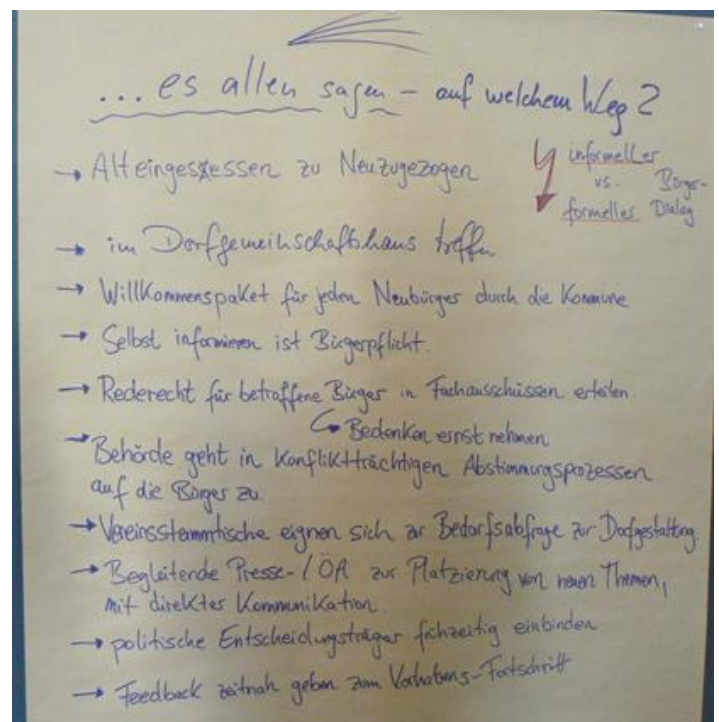 ... es allen sagen – auf welchem Weg?
informeller
vs. Bürger-
formelles Dialog
→ Alteingesessen zu Neuzugezogen
→ im Dorfgemeinschaftshaus treffen
→ Willkommenspaket für jeden Neubürger durch die Kommune
→ Selbst informieren ist Bürgerpflicht.
→ Rederecht für betroffene Bürger in Fachausschüssen erteilen
↳ Bedenken ernst nehmen
→ Behörde geht in Konfliktträchtigen Abstimmungsprozessen
auf die Bürger zu.
→ Vereinsstammtische eignen sich zur Bedarfsabfrage zur Dorfgestaltung.
→ Begleitende Presse-/ÖA zur Platzierung von neuen Themen,
mit direkter Kommunikation.
→ politische Entscheidungsträger frühzeitig einbinden
→ Feedback zeitnah geben zum Vorhabens-Fortschritt